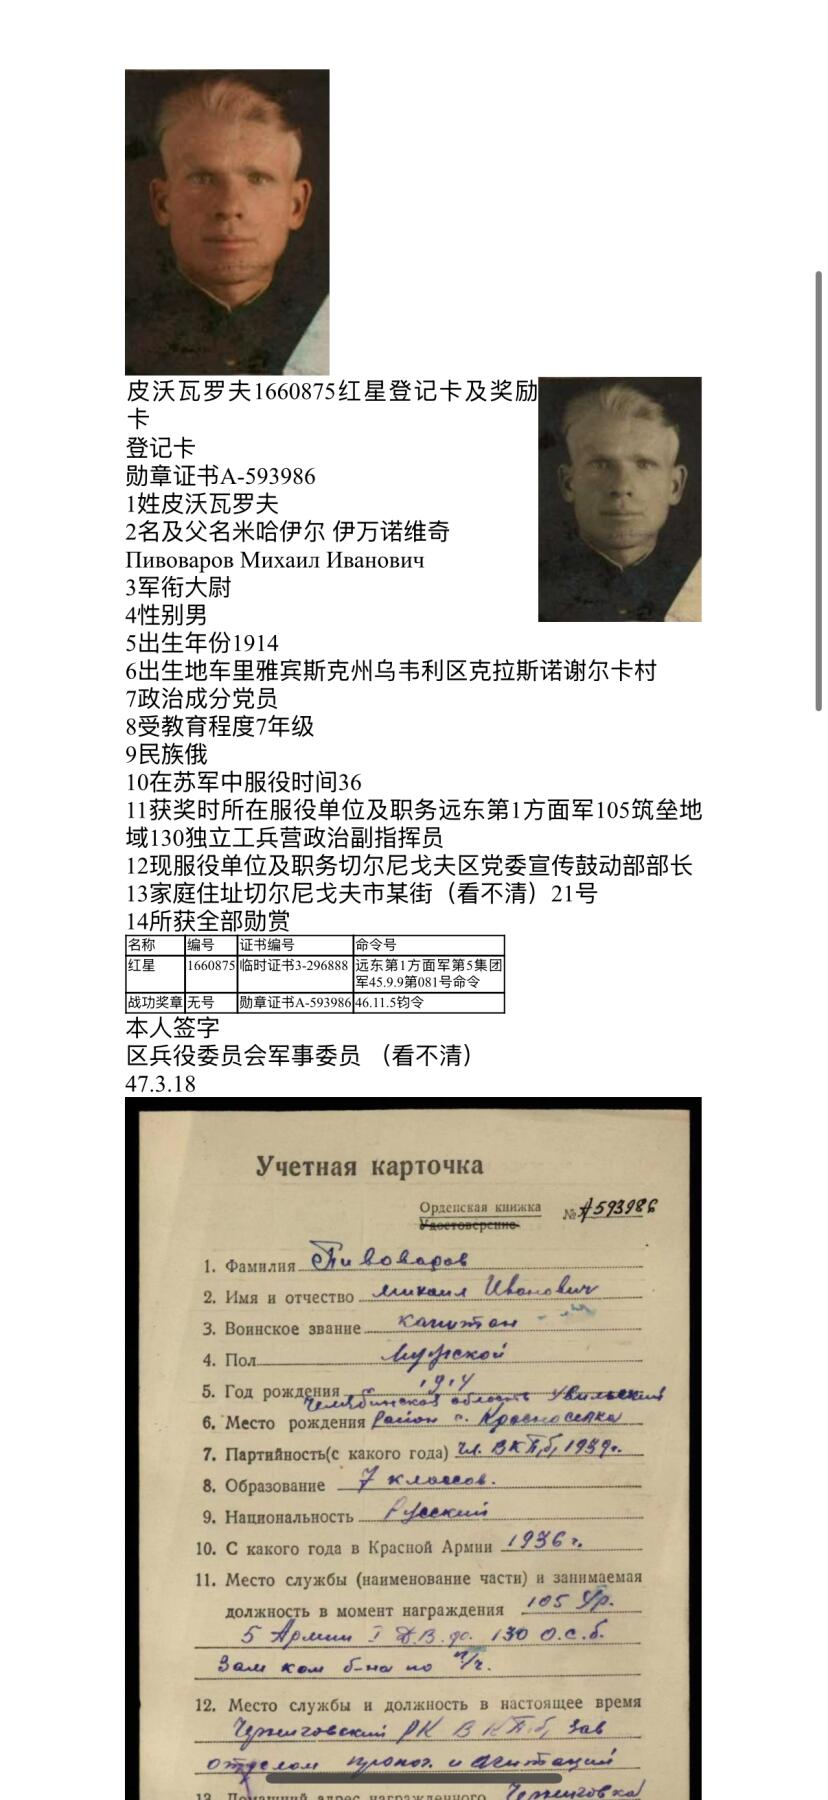 皮沃瓦罗夫1660875红星登记卡及奖励
卡
登记卡
勋章证书A-593986
1姓皮沃瓦罗夫
2名及父名米哈伊尔 伊万诺维奇
Пивоваров Михаил Иванович
3军衔大尉
4性别男
5出生年份1914
6出生地车里雅宾斯克州乌韦利区克拉斯诺谢尔卡村
7政治成分党员
8受教育程度7年级
9民族俄
10在苏军中服役时间36
11获奖时所在服役单位及职务远东第1方面军105筑垒地
域130独立工兵营政治副指挥员
12现服役单位及职务切尔尼戈夫区党委宣传鼓动部部长
13家庭住址切尔尼戈夫市某街（看不清）21号
14所获全部勋赏
名称 编号 证书编号 命令号
红星 1660875 临时证书3-296888 远东第1方面军第5集团
军45.9.9第081号命令
战功奖章 无号 勋章证书A-593986 46.11.5钧令
本人签字
区兵役委员会军事委员 （看不清）
47.3.18
Учетная карточка
Орденская книжка № А593986
Удостоверение
1. Фамилия Пивоваров
2. Имя и отчество Михаил Иванович
3. Воинское звание капитан
4. Пол Мужской
5. Год рождения 1914
Челябинская область Увельский
6. Место рождения район с. Красноселка
7. Партийность(с какого года) чл. ВКП,б, 1939г.
8. Образование 7 классов.
9. Национальность Русский
10. С какого года в Красной Армии 1936 г.
11. Место службы (наименование части) и занимаемая
должность в момент награждения 105 Ур.
5 Армии I Д.В.фр. 130 О.с.б.
Зам ком б-на по п/ч.
12. Место службы и должность в настоящее время
Черниговский РК ВКП,б, Зав
отделом пропог. и агитаций
13. Домашний адрес награжденного Черниговка